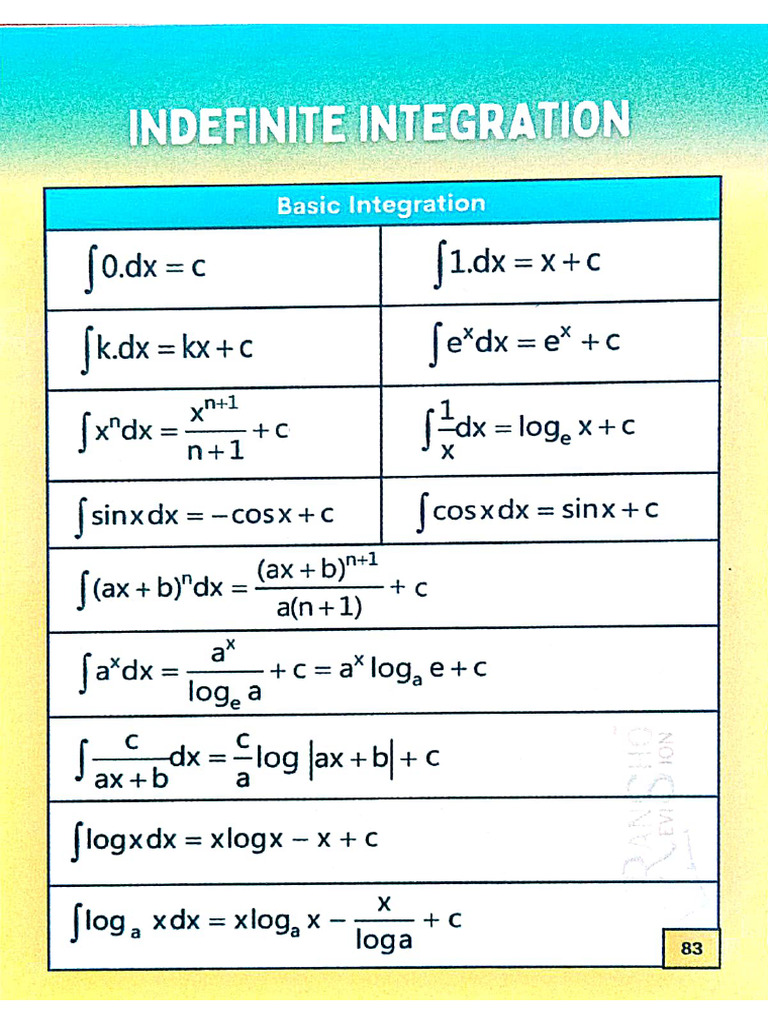 INDEFINITE INTEGRATION
Basic Integration
∫0.dx = c
∫1.dx = x + c
∫k.dx = kx + c
∫eˣdx = eˣ + c
∫xⁿdx = xⁿ⁺¹/(n+1) + c
∫(1/x)dx = logₑ x + c
∫sinx dx = −cosx + c
∫cosx dx = sinx + c
∫(ax + b)ⁿdx = (ax + b)ⁿ⁺¹/(a(n+1)) + c
∫aˣdx = aˣ/(logₑ a) + c = aˣ logₐ e + c
∫c/(ax + b) dx = (c/a) log |ax + b| + c
∫logx dx = xlogx − x + c
∫logₐ x dx = xlogₐ x − x/(loga) + c
83